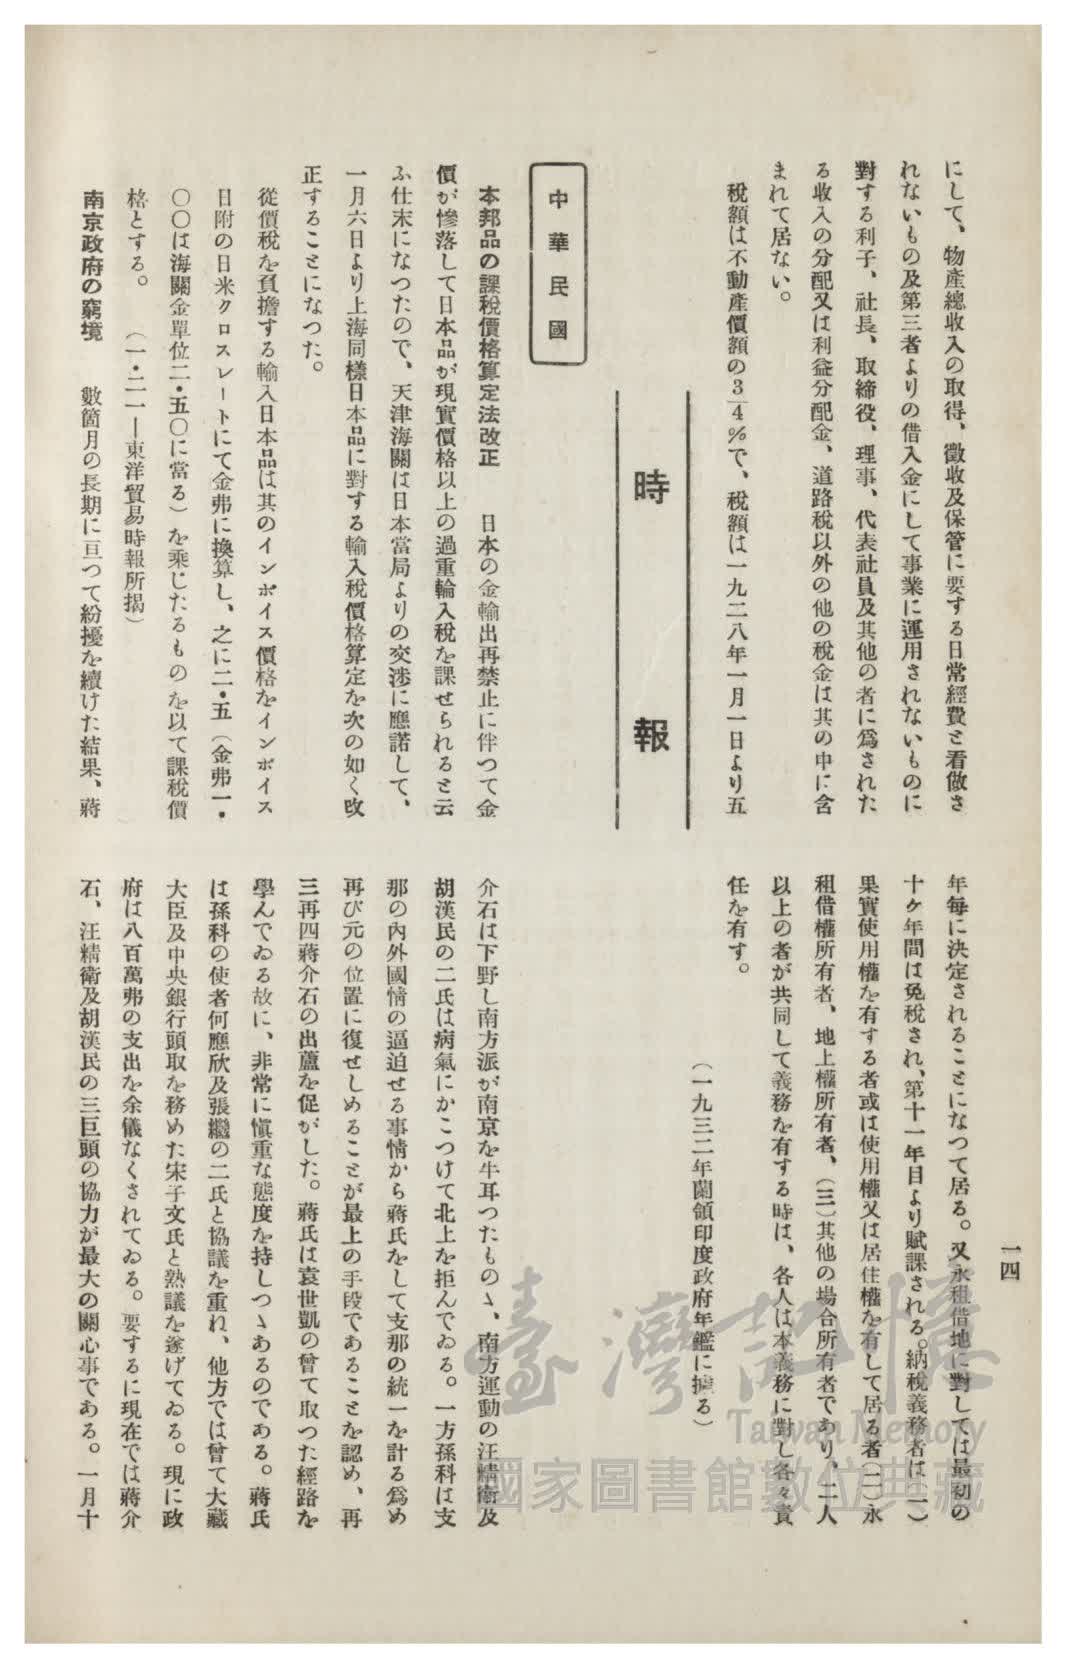 一四
にして、物產總收入の取得、徵收及保管に要する日常經費と看做さ
れないもの及第三者よりの借入金にして事業に運用されないものに
對する利子、社長、取締役、理事、代表社員及其他の者に爲された
る收入の分配又は利益分配金、道路稅以外の他の稅金は其の中に含
まれて居ない。
稅額は不動產價額の3/4%で、稅額は一九二八年一月一日より五
年每に決定されることになつて居る。又永租借地に對しては最初の
十ケ年間は免稅され、第十一年目より賦課される。納稅義務者は(一)
果實使用權を有する者或は使用權又は居住權を有して居る者(二)永
租借權所有者、地上權所有者、(三)其他の場合所有者であり、二人
以上の者が共同して義務を有する時は、各人は本義務に對し各々責
任を有す。
(一九三二年蘭領印度政府年鑑に據る)
時報
中華民國
本邦品の課稅價格算定法改正　日本の金輸出再禁止に伴つて金
價が慘落して日本品が現實價格以上の過重輸入稅を課せられると云
ふ仕末になつたので、天津海關は日本當局よりの交涉に應諾して、
一月六日より上海同樣日本品に對する輸入稅價格算定を次の如く改
正することになつた。
從價稅を負擔する輸入日本品は其のインボイス價格をインボイス
日附の日米クロスレートにて金弗に換算し、之に二・五(金弗一・
〇〇は海關金單位二・五〇に當る)を乘じたるものを以て課稅價
格とする。　(一・二一―東洋貿易時報所揭)
南京政府の窮境　數箇月の長期に亘つて紛擾を續けた結果、蔣
介石は下野し南方派が南京を牛耳つたものゝ、南方運動の汪精衞及
胡漢民の二氏は病氣にかこつけて北上を拒んでゐる。一方孫科は支
那の內外國情の逼迫せる事情から蔣氏をして支那の統一を計る爲め
再び元の位置に復せしめることが最上の手段であることを認め、再
三再四蔣介石の出蘆を促がした。蔣氏は袁世凱の曾て取つた經路を
學んでゐる故に、非常に愼重な態度を持しつゝあるのである。蔣氏
は孫科の使者何應欣及張繼の二氏と協議を重ね、他方では曾て大藏
大臣及中央銀行頭取を務めた宋子文氏と熟議を遂げてゐる。現に政
府は八百萬弗の支出を余儀なくされてゐる。要するに現在では蔣介
石、汪精衞及胡漢民の三巨頭の協力が最大の關心事である。一月十
臺灣記憶
Taiwan Memory
國家圖書館數位典藏